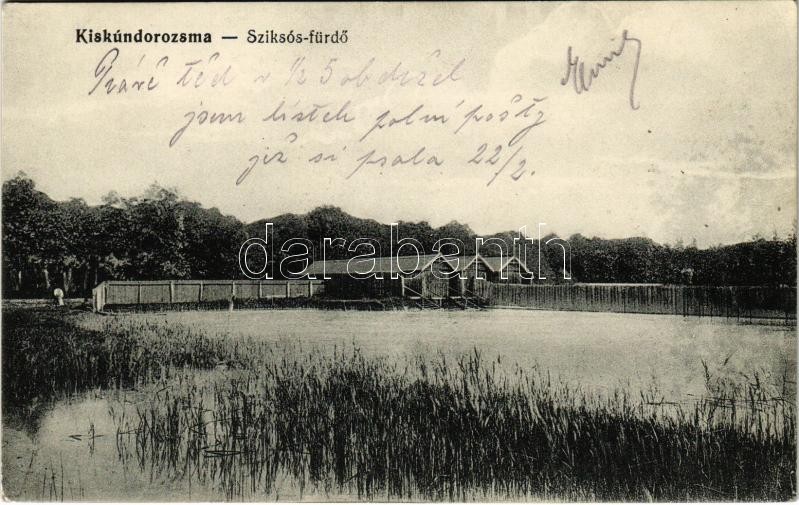 Kiskúndorozsma — Sziksós-fürdő
Právě teď v ½ 5 obdržel
jsem lístek polní pošty
jež si psala 22/2.
darabanth